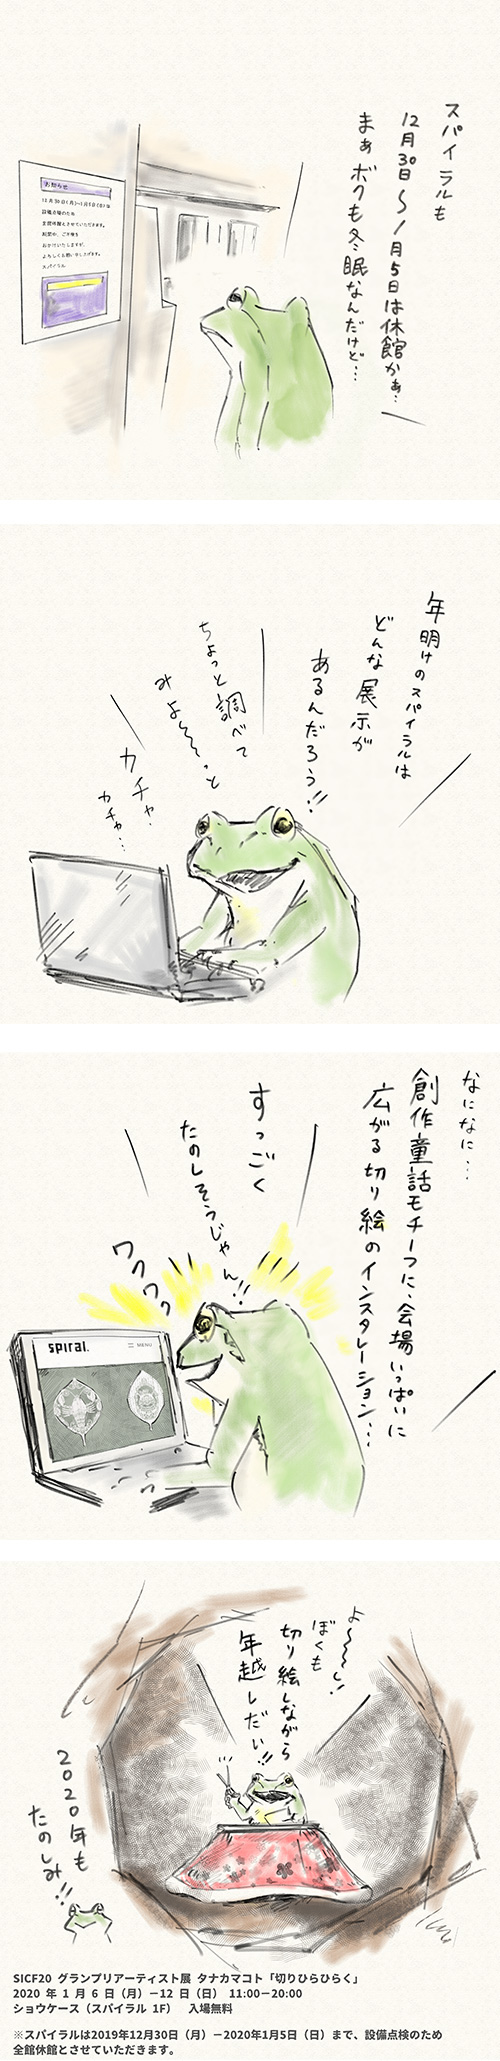 スパイラルも
12月30日〜1月5日は休館かぁ…
まぁボクも冬眠なんだけど…
お知らせ
12月30日(月)〜1月5日(日)は
設備点検のため
全館休館とさせていただきます。
期間中、ご不便を
おかけいたしますが、
よろしくお願い申し上げます。
スパイラル
年明けのスパイラルは
どんな展示が
あるんだろう!!
ちょっと調べて
みよ〜〜っと
カチャ・
カチャ…
なになに…
創作童話モチーフに、会場いっぱいに
広がる切り絵のインスタレーション…
すっごく
たのしそうじゃん!!
ワクワク
spiral.
MENU
よ〜〜し!
ぼくも
切り絵しながら
年越しだい!!
2020年も
たのしみ!!
SICF20 グランプリアーティスト展 タナカマコト「切りひらひらく」
2020 年 1 月 6 日（月）ー12 日（日） 11:00ー20:00
ショウケース（スパイラル 1F） 入場無料
※スパイラルは2019年12月30日（月）ー2020年1月5日（日）まで、設備点検のため
全館休館とさせていただきます。